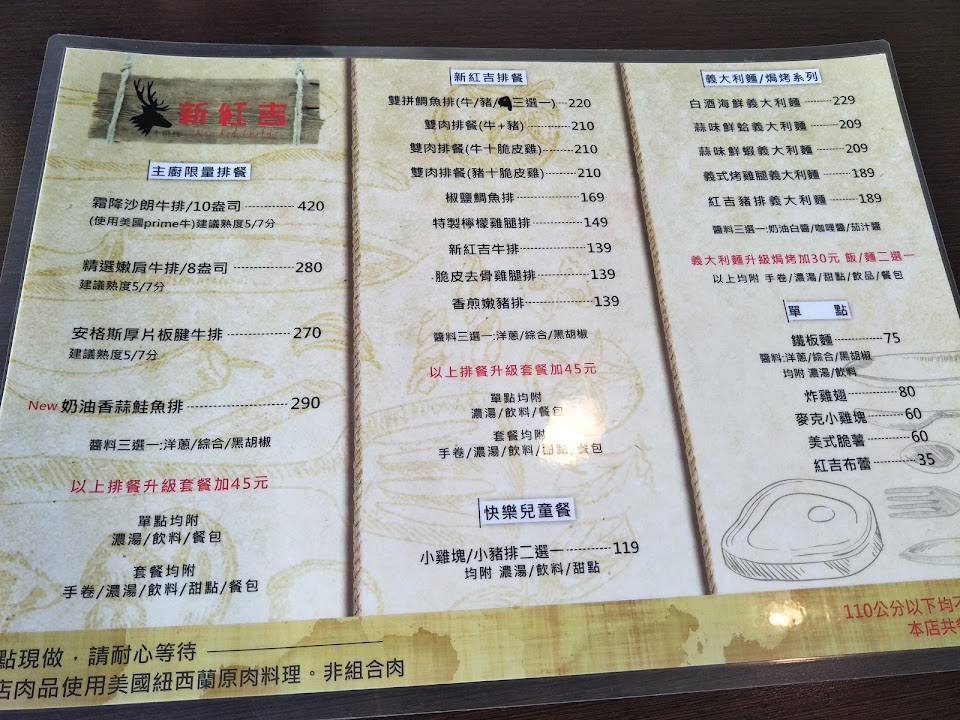 新紅吉
主廚限量排餐
霜降沙朗牛排/10盎司 420
(使用美國prime牛)建議熟度5/7分
精選嫩肩牛排/8盎司 280
建議熟度5/7分
安格斯厚片板腱牛排 270
建議熟度5/7分
New 奶油香蒜鮭魚排 290
醬料三選一:洋蔥/綜合/黑胡椒
以上排餐升級套餐加45元
單點均附
濃湯/飲料/餐包
套餐均附
手卷/濃湯/飲料/甜點/餐包
新紅吉排餐
雙拼鯛魚排(牛/豬/三選一) 220
雙肉排餐(牛+豬) 210
雙肉排餐(牛十脆皮雞) 210
雙肉排餐(豬十脆皮雞) 210
椒鹽鯛魚排 169
特製檸檬雞腿排 149
新紅吉牛排 139
脆皮去骨雞腿排 139
香煎嫩豬排 139
醬料三選一:洋蔥/綜合/黑胡椒
以上排餐升級套餐加45元
單點均附
濃湯/飲料/餐包
套餐均附
手卷/濃湯/飲料/甜點/餐包
快樂兒童餐
小雞塊/小豬排二選一 119
均附 濃湯/飲料/甜點
義大利麵/焗烤系列
白酒海鮮義大利麵 229
蒜味鮮蛤義大利麵 209
蒜味鮮蝦義大利麵 209
義式烤雞腿義大利麵 189
紅吉豬排義大利麵 189
醬料三選一:奶油白醬/咖哩醬/茄汁醬
義大利麵升級焗烤加30元 飯/麵二選一
以上均附 手卷/濃湯/甜點/飲品/餐包
單 點
鐵板麵 75
醬料:洋蔥/綜合/黑胡椒
均附 濃湯/飲料
炸雞翅 80
麥克小雞塊 60
美式脆薯 60
紅吉布蕾 35
點現做，請耐心等待
店肉品使用美國紐西蘭原肉料理。非組合肉
110公分以下均不
本店共